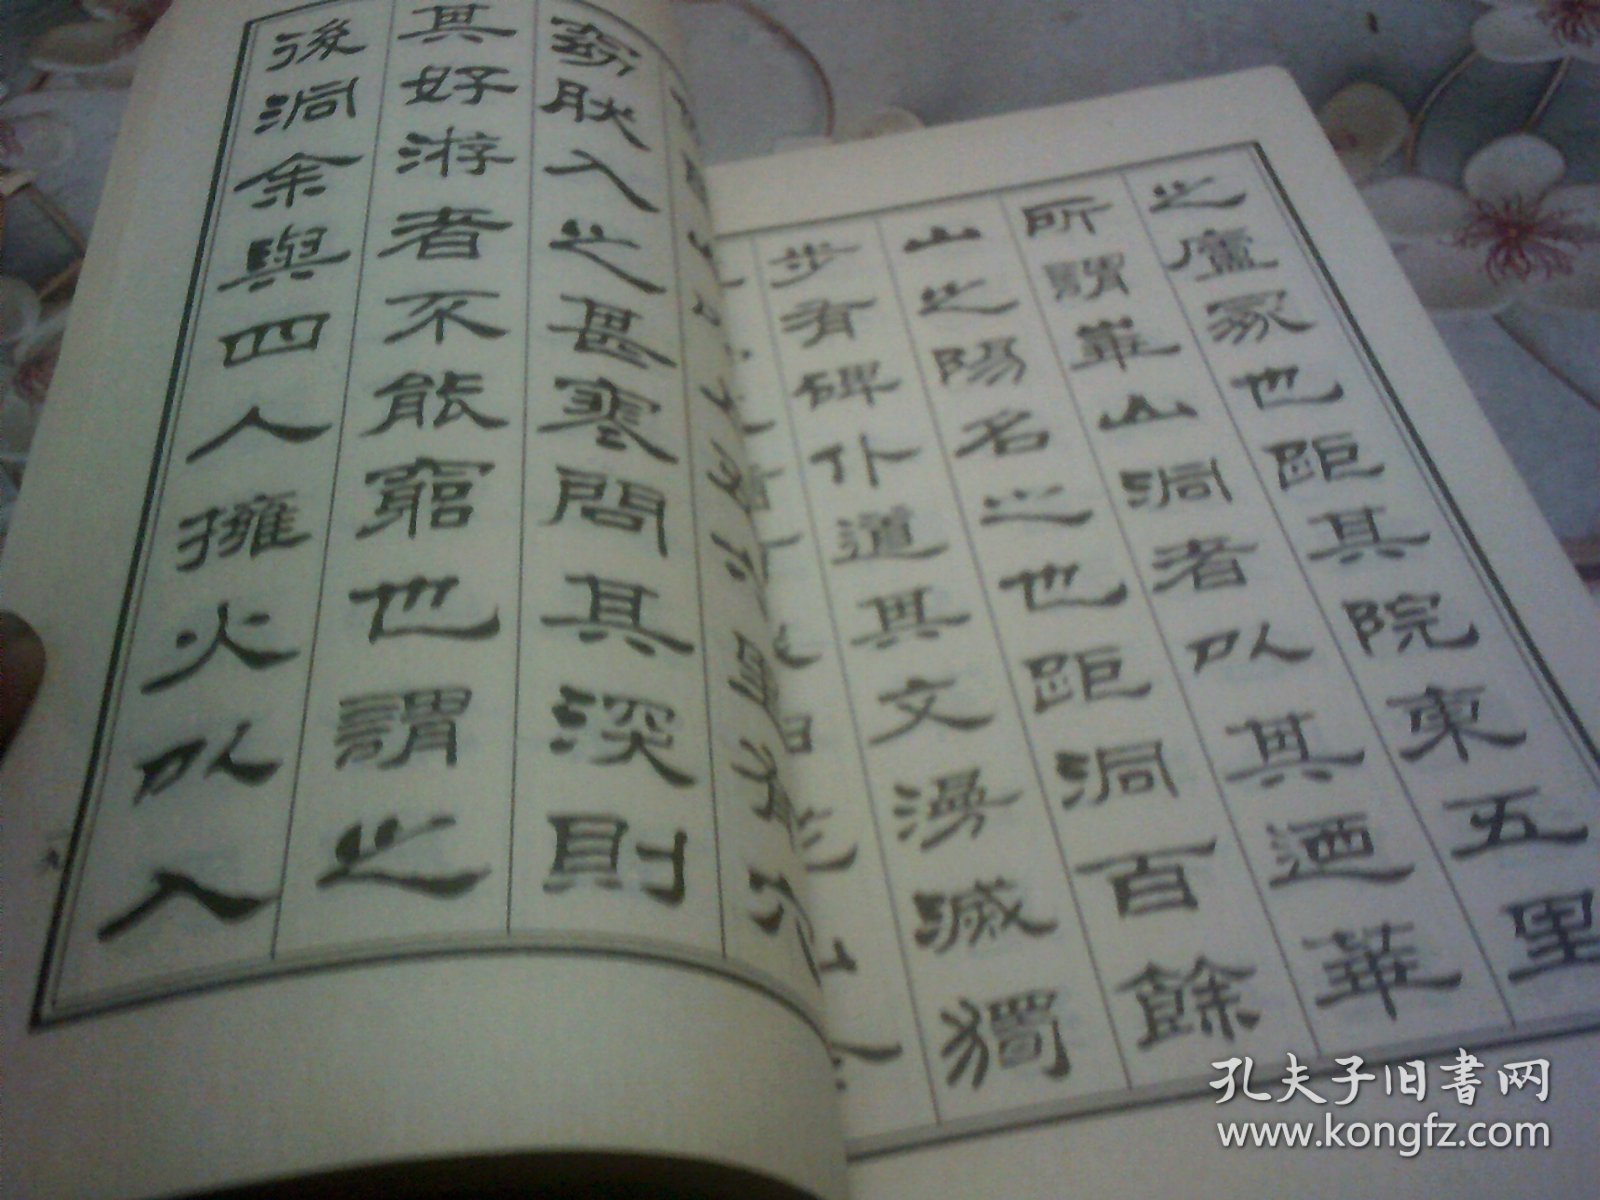 之廬冢也距其院東五里
所謂華山洞者以其迺華
山之陽名之也距洞百餘
步有碑仆道其文漫滅獨
窈肰入之甚寒問其深則
其好游者不能窮也謂之
後洞余與四人擁火以入
孔夫子旧书网
www.kongfz.com